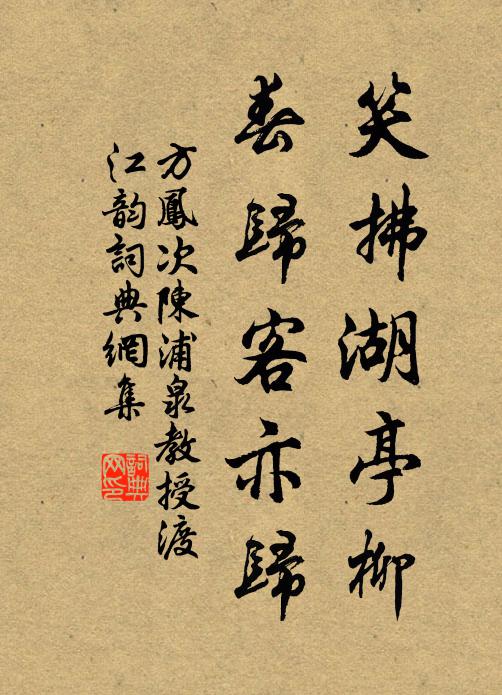 笑拂湖亭柳
春歸客亦歸
方鳳次陳浦泉教授渡
江韵詞典網集
詞典
网印